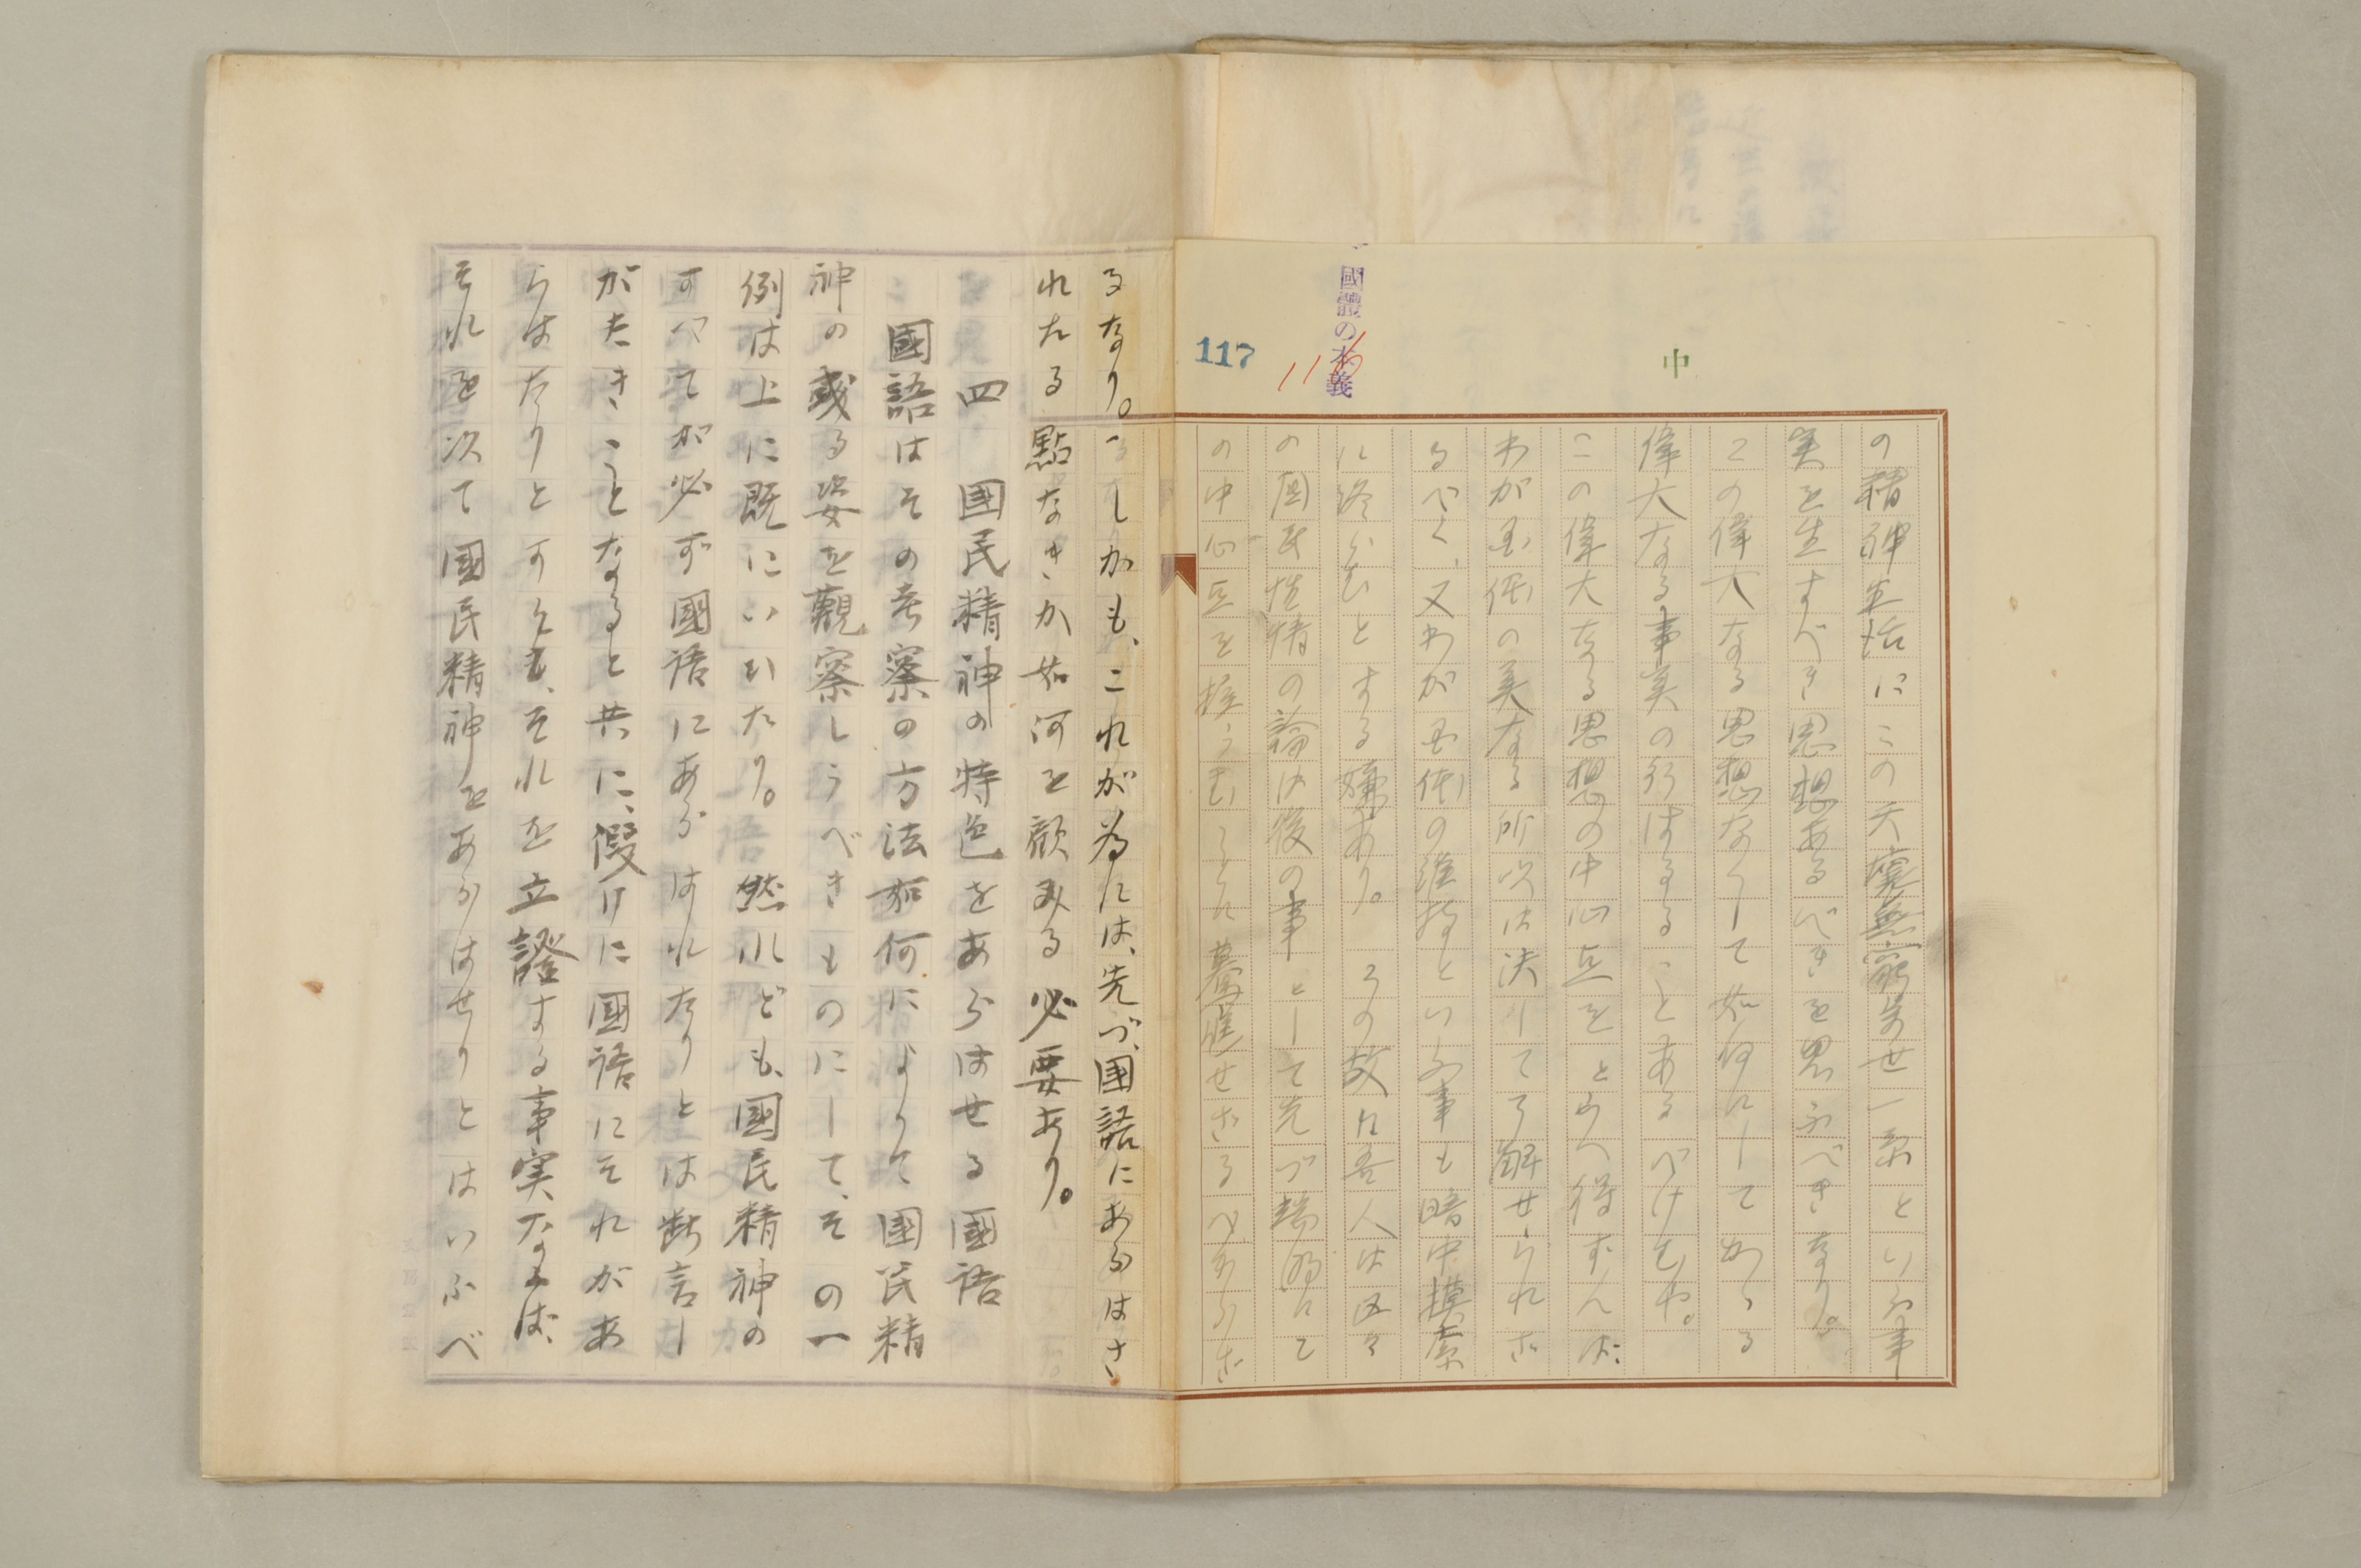 中
國體の本義
117
の精神生活にこの天壤無窮万世一系といふ事
実を生すべき思想あるべきを思ふべきなり。
この偉大なる思想なくして如何にしてかゝる
偉大なる事実の行はるゝことあるべけむや。
この偉大なる思想の中心点をとらへ得ずんば、
わが国体の美なる所以は決して了解せられざ
るべく、又わが国体の維持といふ事も暗中摸索
に終らむとする嫌あり。この故に吾人は区々
の国民性情の論は後の事として先づ端的にそ
の中心点を捉へむことに驀進せざるべからざ
るなり。しかも、これが為には、先づ、國語にあらはさ
れたる點なきか如何を顧みる必要あり。
四 國民精神の特色をあらはせる國語
國語はその考察の方法如何によりて國民精
神の或る姿を觀察しうべきものにして、その一
例は上に既にいひたり。然れども、國民精神の
すべてが必ず國語にあらはれたりとは断言し
がたきことなると共に、假りに國語にそれがあ
らはたりとするも、それを立證する事実なくば、
それを次て國民精神をあらはせりとはいふべ